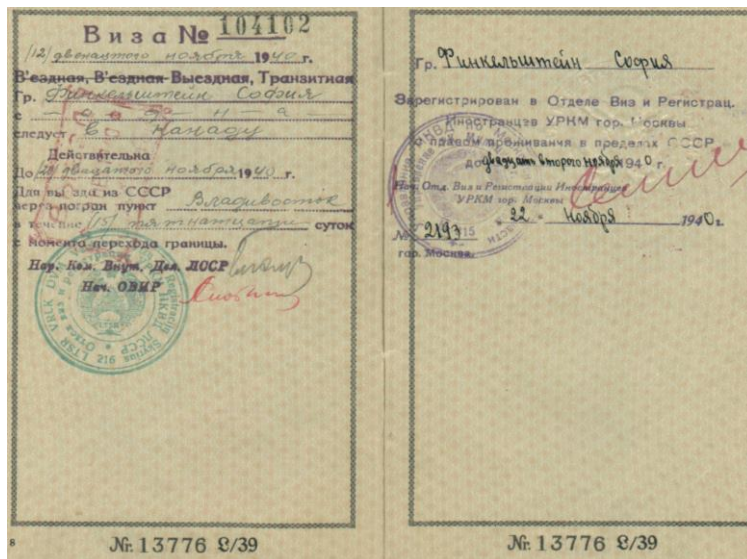 Виза № 104102
/12/ двенацтого ноября 1940 г.
В'ездная, В'ездная-Выездная, Транзитная
Гр. Финкельштейн София
с — о — д — н — а —
следует в Канаду
Действительна
До /20/ двацатого ноября 1940 г.
Для выезда из СССР
через погран пункт Владивосток
в течение /15/ пятнатцати суток
с момента перехода границы.
Нар. Ком. Внут. Дел. ЛССР
Нач. ОВИР
LTSR VRLK
НКВД ЛССР
216
8
№ 13776 L/39
Гр. Финкельштейн София
Зарегистрирован в Отделе Виз и Регистрац.
Иностранцев УРКМ гор. Москвы
с правом проживания в пределах СССР
до двадцать второго ноября 1940 г.
Нач. Отд. Виз и Регистрации Иностранцев
УРКМ гор. Москвы
22 Ноября 1940 г.
№ 2193
15
гор. Москва.
№ 13776 L/39